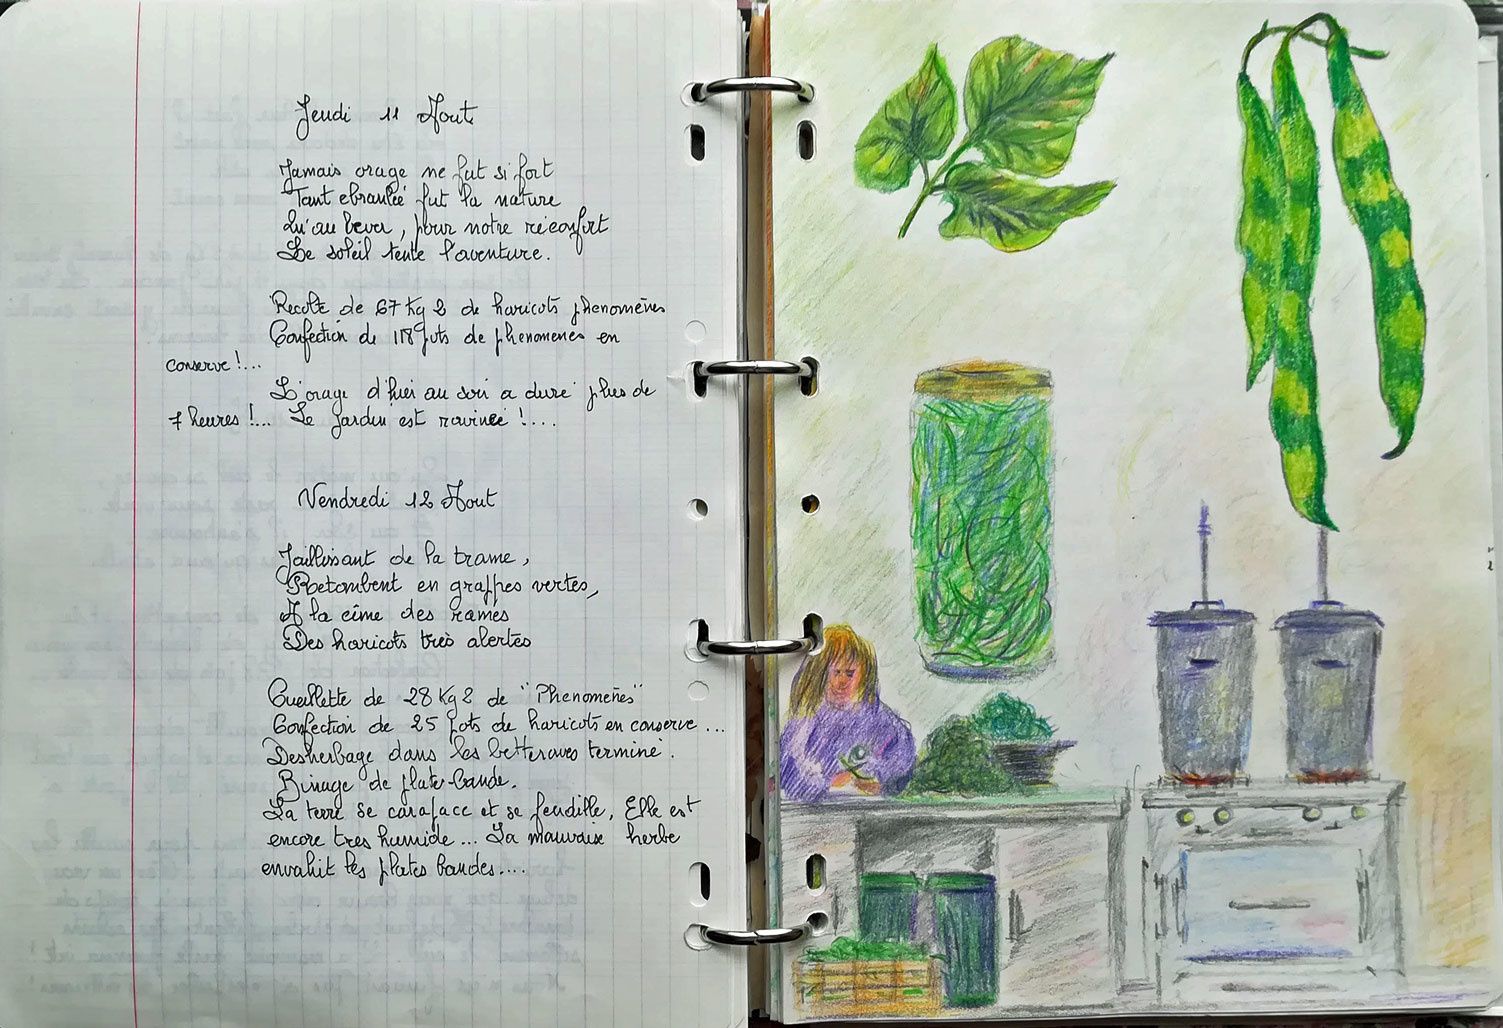 Jeudi 11 Aout
Jamais orage ne fut si fort
Tant ebranlée fut la nature
Qu'au lever, pour notre réconfort
Le soleil tente l'aventure.
Recolte de 67 Kg 2 de haricots phenomènes
Confection de 118 pots de phenomenes en
conserve !...
L'orage d'hier au soir a duré plus de
7 heures !... Le jardin est raviné !....
Vendredi 12 Aout
Jaillissant de la trame,
Retombent en grappes vertes,
A la cîme des rames
Des haricots très alertes
Cueillette de 28 Kg 2 de "Phenomènes"
Confection de 25 pots de haricots en conserve ...
Desherbage dans les betteraves terminé.
Binage de plate-bande.
La terre se carapace et se fendille. Elle est
encore très humide... La mauvaise herbe
envahit les plates bandes....